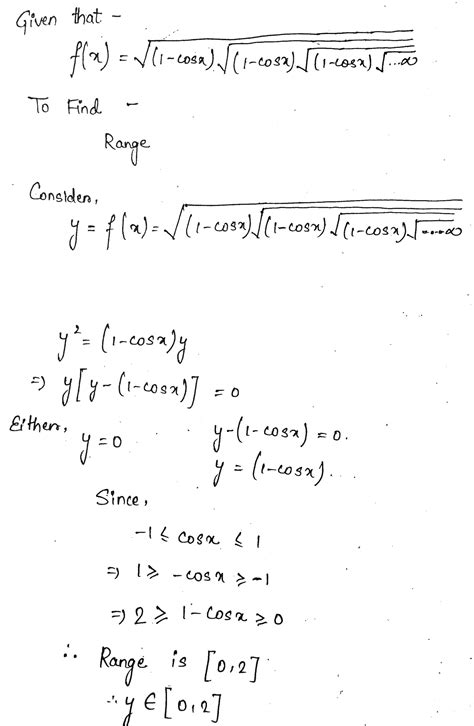 Given that -
f(x) = √(1-cosx)√(1-cosx)√(1-cosx)√...∞
To Find -
Range
Consider,
y = f(x) = √(1-cosx)√(1-cosx)√(1-cosx)√.....∞
y² = (1-cosx)y
⇒ y[y-(1-cosx)] = 0
Either, y=0 y-(1-cosx) = 0.
y = (1-cosx).
Since,
-1 ≤ cosx ≤ 1
⇒ 1 ≥ -cosx ≥ -1
⇒ 2 ≥ 1-cosx ≥ 0
∴ Range is [0,2]
∴ y ∈ [0,2]